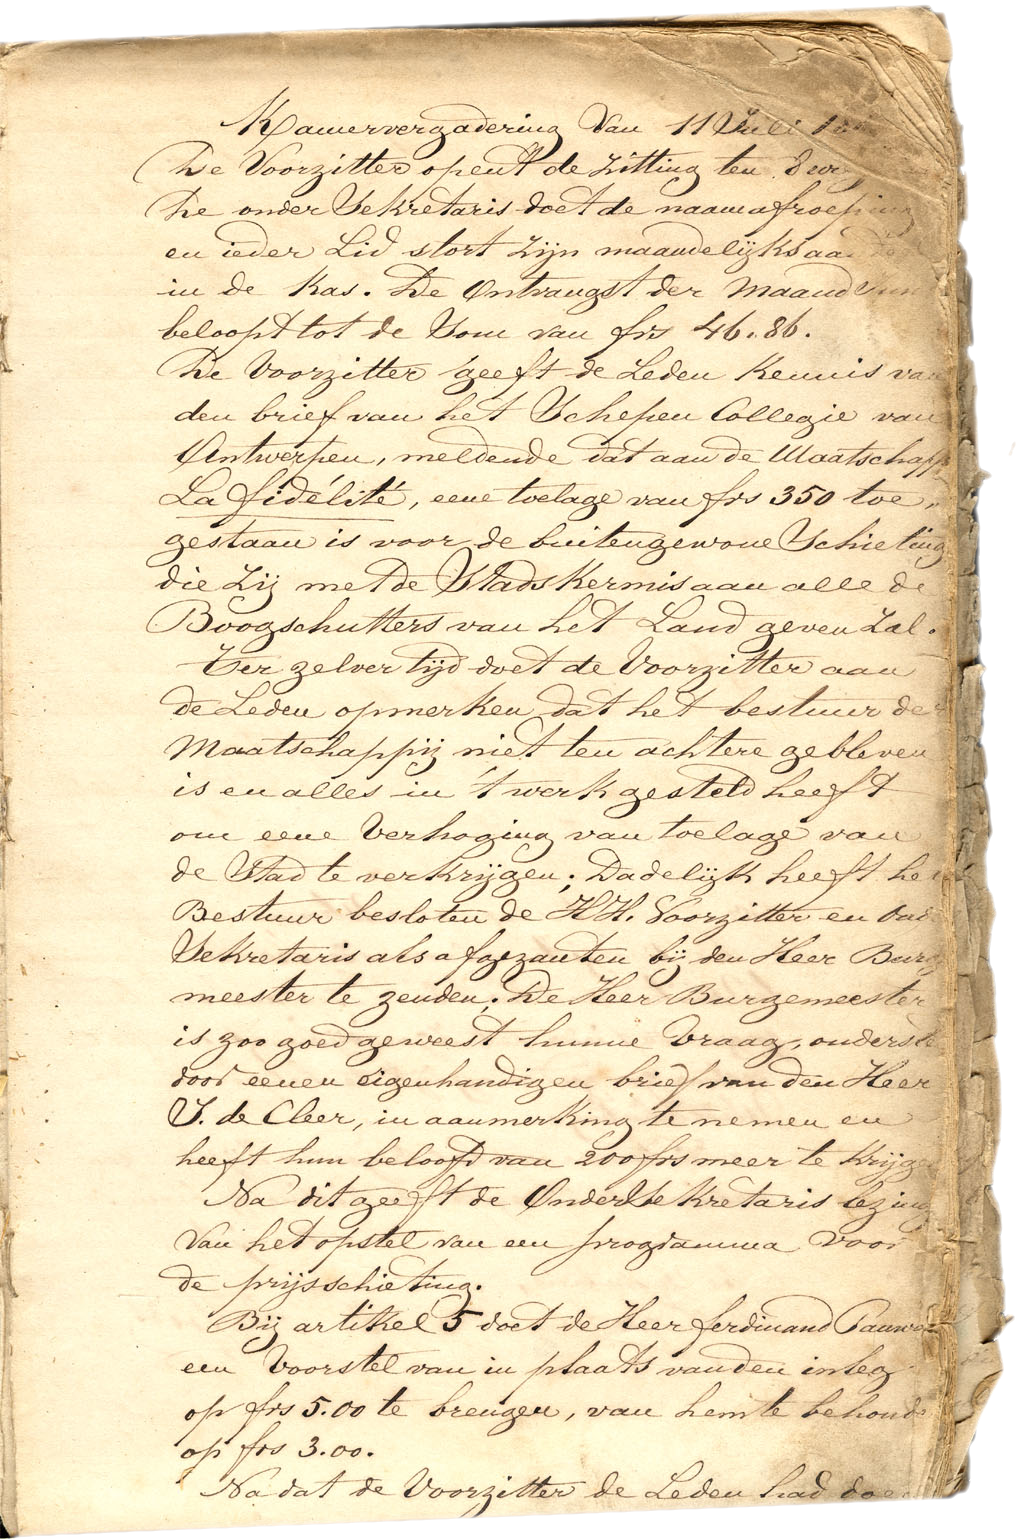 Kamervergadering Van 11 Juli
De Voorzitter opent de Zitting ten
De onder Sekretaris doet de naamafroeping
en ieder Lid stort Zijn maandelijks
in de Kas. De Ontvangst der Maand
beloopt tot de Som van frs 46.86.
De Voorzitter geeft de Leden Kennis van
den brief van het Schepen Collegie van
Antwerpen, meldende dat aan de Maatschapp
La fidélité, eene toelage van frs 350 toe
gestaan is voor de buitengewone Schieting
die Zij met de Stads Kermis aan alle de
Boogschutters van het Land geven Zal.
Ter zelver tijd doet de Voorzitter aan
de Leden opmerken dat het bestuur der
Maatschappij niet ten achtere gebleven
is en alles in 't werk gesteld heeft
om eene Verhoging van toelage van
de Stad te verkrijgen; Dadelijk heeft he
Bestuur besloten de HH. Voorzitter en
Sekretaris als afgezanten bij den Heer Burg
meester te zenden; De Heer Burgemeester
is zoo goed geweest hunne Vraag, onderste
door eenen eigenhandigen brief van den Heer
J. de Cleer, in aanmerking te nemen en
heeft hun beloofd van 200 frs meer te Krijge
Na dit geeft de Onder Sekretaris lezing
Van het opstel van een programma voor
de prijsschieting.
Bij artikel 5 doet de Heer ferdinand Pauwe
een Voorstel van in plaats van den inleg
op frs 5.00 te brengen, van hem te behoud
op frs 3.00.
Na dat de Voorzitter de Leden had doe